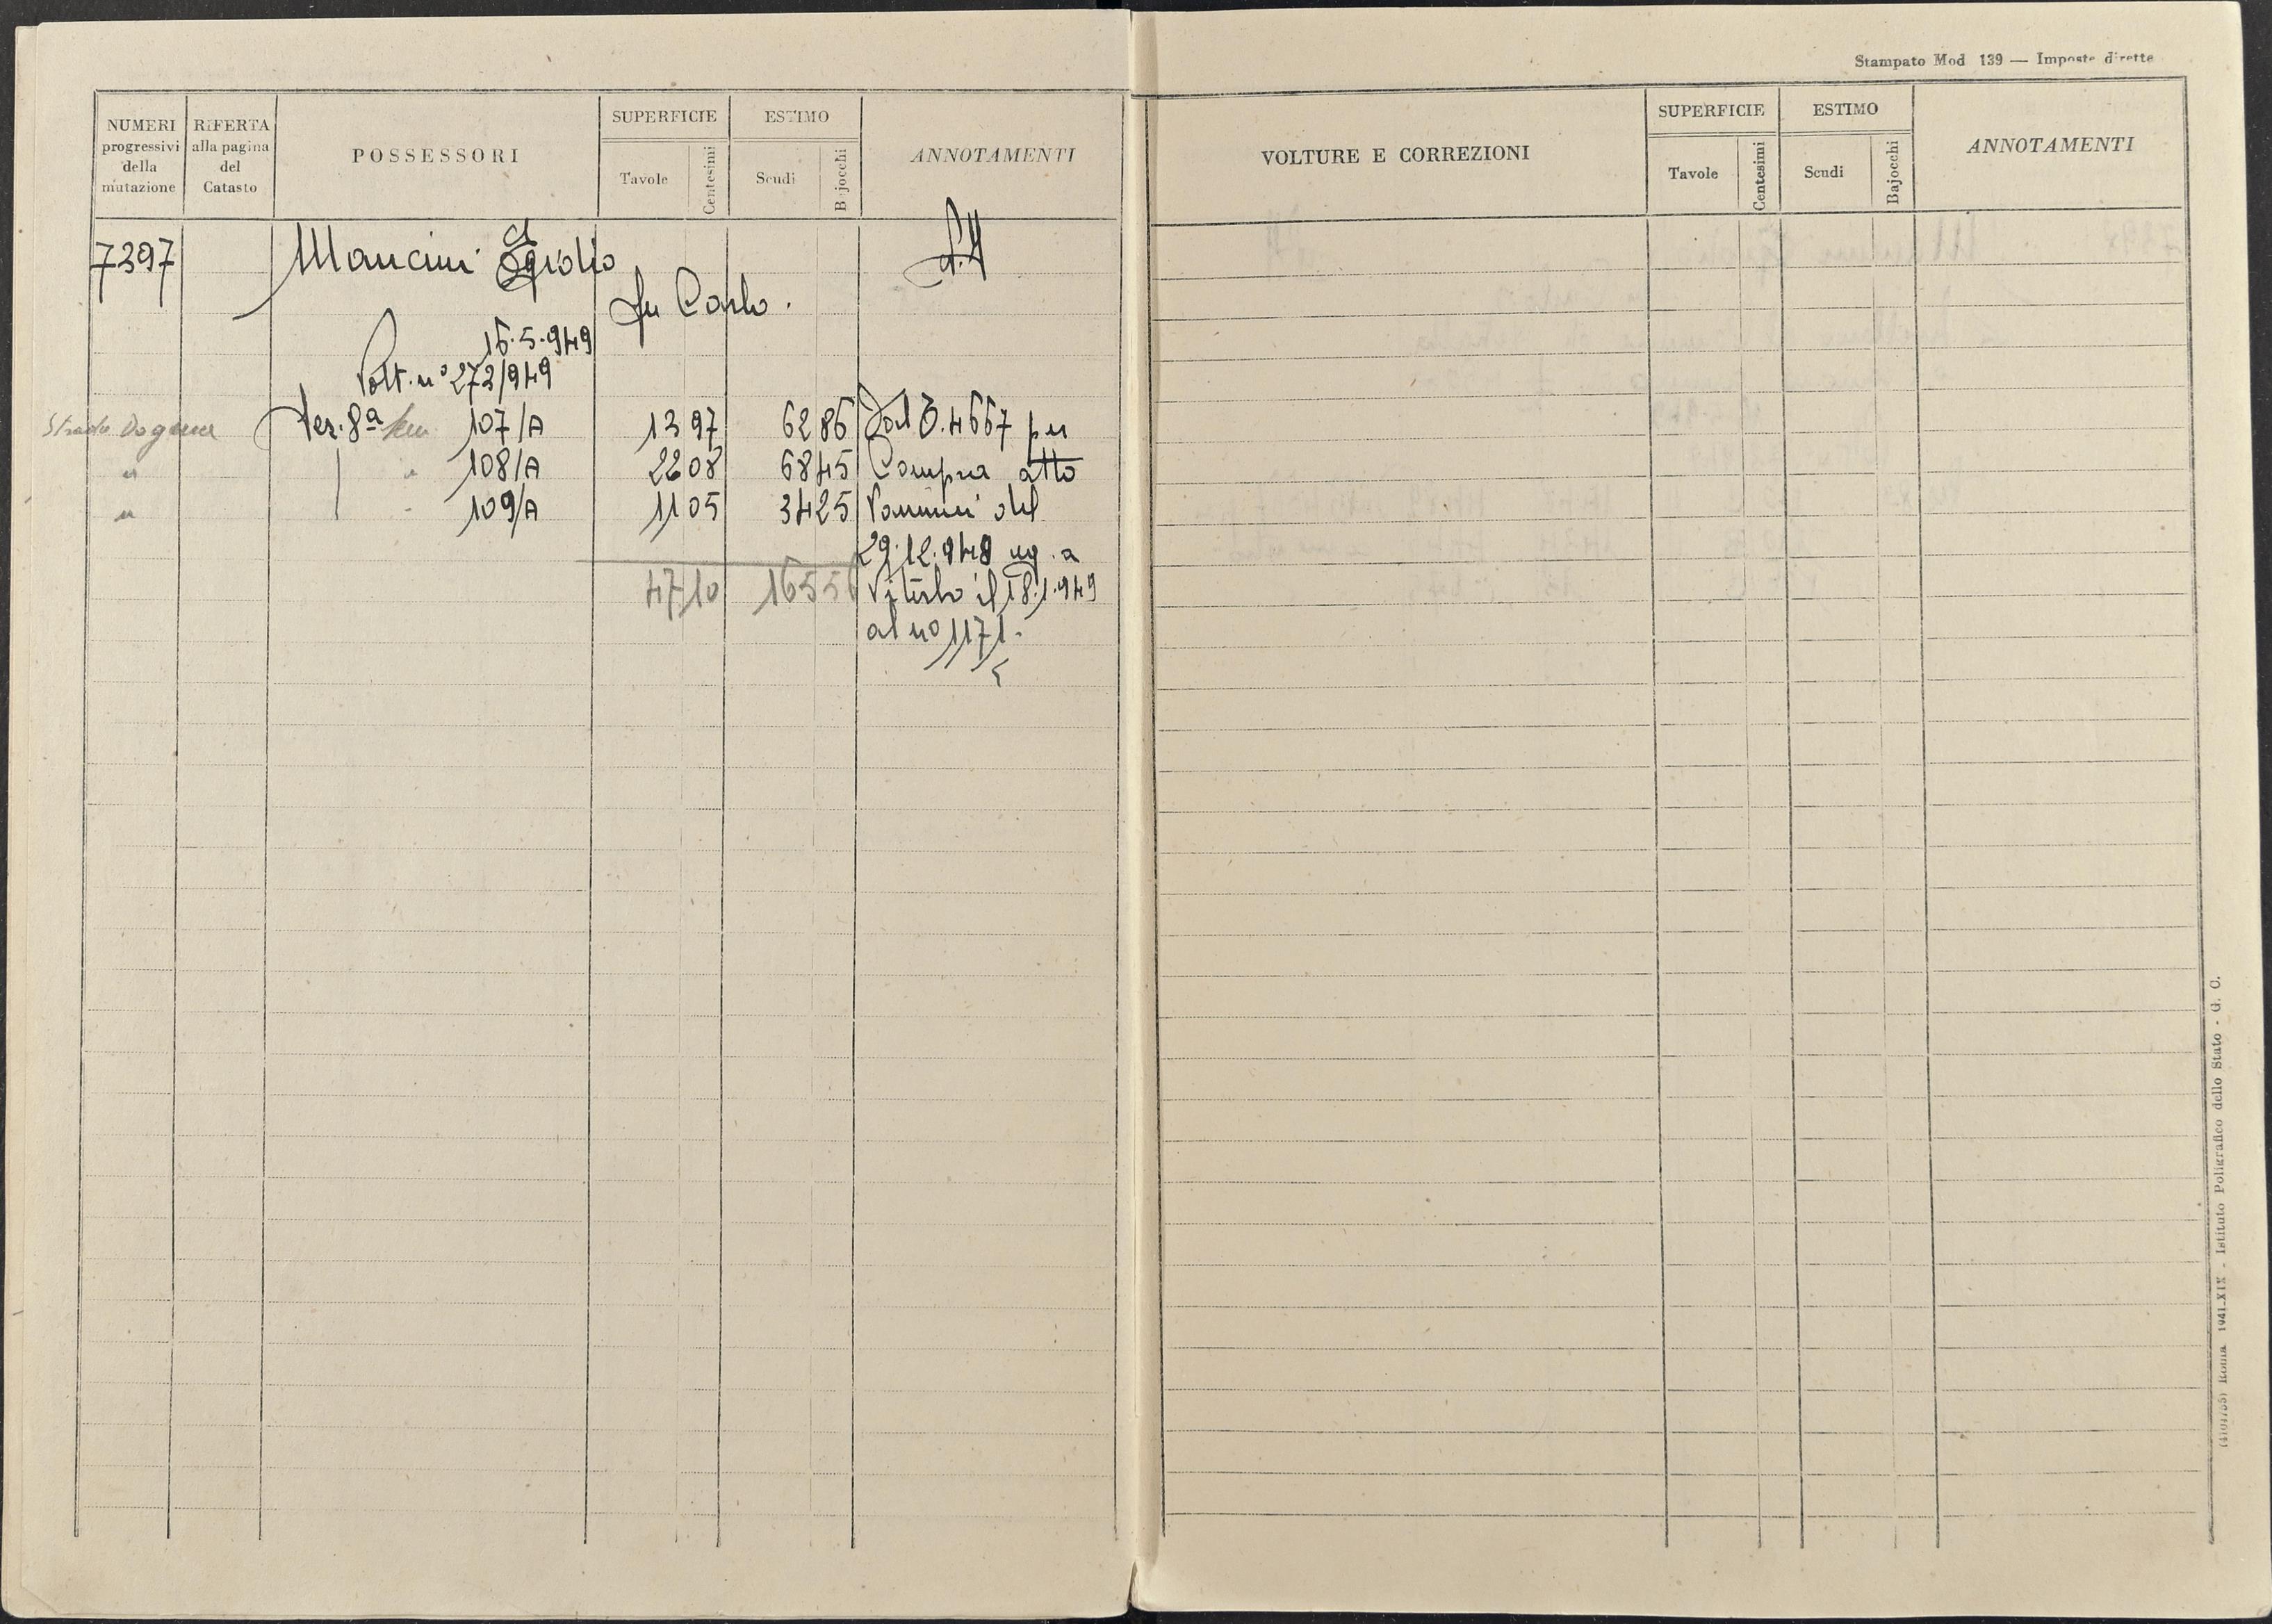 Stampato Mod 139 — Imposte dirette
NUMERI progressivi della mutazione
RIFERTA alla pagina del Catasto
POSSESSORI
SUPERFICIE
Tavole Centesimi
ESTIMO
Scudi Bajocchi
ANNOTAMENTI
VOLTURE E CORREZIONI
SUPERFICIE
Tavole Centesimi
ESTIMO
Scudi Bajocchi
ANNOTAMENTI
7397 Mancini Egidio
fu Carlo.
16.5.949
Volt. n° 272/949
Strada Dogana Sez. 8ª 107/A 13 97 62 86 Dal 4667 per
" " 108/A 22 08 68 45 Compra atto
" " 109/A 11 05 34 25 Vannini del
29.12.948 reg. a
47 10 165 56 Viterbo il 18.1.949
al n° 1171.
Roma 1941-XIX - Istituto Poligrafico dello Stato - G. C.